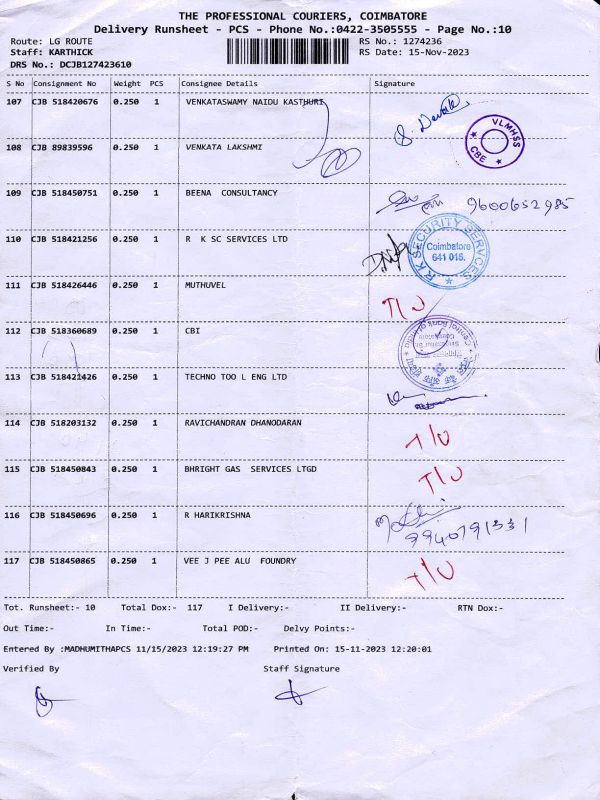 THE PROFESSIONAL COURIERS, COIMBATORE
Delivery Runsheet - PCS - Phone No.:0422-3505555 - Page No.:10
Route: LG ROUTE RS No.: 1274236
Staff: KARTHICK RS Date: 15-Nov-2023
DRS No.: DCJB127423610
S No Consignment No Weight PCS Consignee Details Signature
107 CJB 518420676 0.250 1 VENKATASWAMY NAIDU KASTHURI
VLMHSS
CBE
108 CJB 89839596 0.250 1 VENKATA LAKSHMI
109 CJB 518450751 0.250 1 BEENA CONSULTANCY
9600652985
110 CJB 518421256 0.250 1 R K SC SERVICES LTD
R K SECURITY SERVICES
Coimbatore
641 018.
111 CJB 518426446 0.250 1 MUTHUVEL
T/U
112 CJB 518360689 0.250 1 CBI
113 CJB 518421426 0.250 1 TECHNO TOO L ENG LTD
114 CJB 518203132 0.250 1 RAVICHANDRAN DHANODARAN
T/U
115 CJB 518450843 0.250 1 BHRIGHT GAS SERVICES LTGD
T/U
116 CJB 518450696 0.250 1 R HARIKRISHNA
9940791331
117 CJB 518450865 0.250 1 VEE J PEE ALU FOUNDRY
T/U
Tot. Runsheet:- 10 Total Dox:- 117 I Delivery:- II Delivery:- RTN Dox:-
Out Time:- In Time:- Total POD:- Delvy Points:-
Entered By :MADHUMITHAPCS 11/15/2023 12:19:27 PM Printed On: 15-11-2023 12:20:01
Verified By Staff Signature